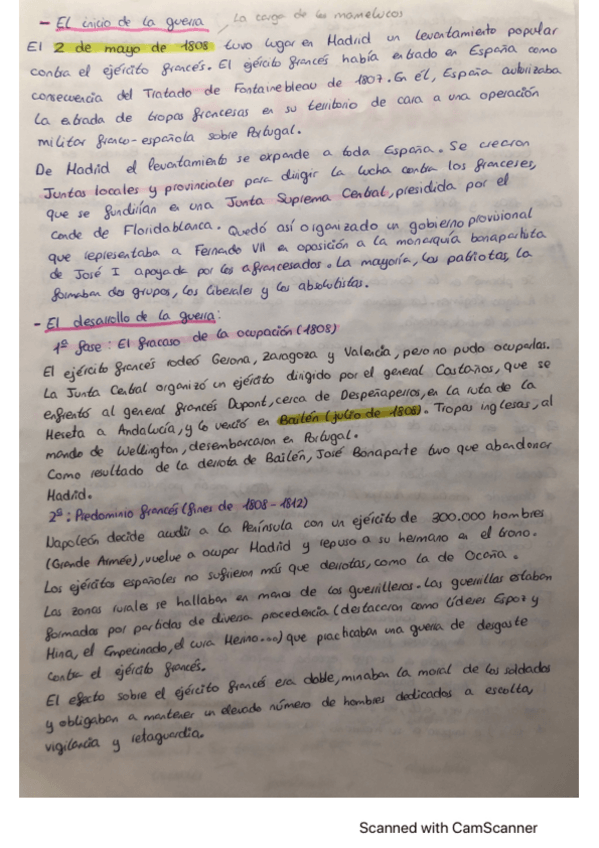 - El inicio de la guerra / La carga de los mamelucos
El 2 de mayo de 1808 tuvo lugar en Madrid un levantamiento popular
contra el ejército francés. El ejército francés había entrado en España como
consecuencia del Tratado de Fontainebleau de 1807. En él, España autorizaba
la entrada de tropas francesas en su territorio de cara a una operación
militar franco-española sobre Portugal.
De Madrid el levantamiento se expande a toda España. Se crearon
Juntas locales y provinciales para dirigir la lucha contra los franceses,
que se fundirían en una Junta Suprema Central, presidida por el
conde de Floridablanca. Quedó así organizado un gobierno provisional
que representaba a Fernando VII en oposición a la monarquía bonapartista
de José I apoyada por los afrancesados. La mayoría, los patriotas, la
formaban dos grupos, los liberales y los absolutistas.
- El desarrollo de la guerra:
1ª fase: El fracaso de la ocupación (1808)
El ejército francés rodeó Gerona, Zaragoza y Valencia, pero no pudo ocuparlas.
La Junta Central organizó un ejército dirigido por el general Castaños, que se
enfrentó al general francés Dupont, cerca de Despeñaperros, en la ruta de la
Meseta a Andalucía, y lo venció en Bailén (julio de 1808). Tropas inglesas, al
mando de Wellington, desembarcaron en Portugal.
Como resultado de la derrota de Bailén, José Bonaparte tuvo que abandonar
Madrid.
2ª: Predominio francés (fines de 1808-1812)
Napoleón decide acudir a la Península con un ejército de 300.000 hombres
(Grande Armée), vuelve a ocupar Madrid y repuso a su hermano en el trono.
Los ejércitos españoles no sufrieron más que derrotas, como la de Ocaña.
Las zonas rurales se hallaban en manos de los guerrilleros. Las guerrillas estaban
formadas por partidas de diversa procedencia (destacaron como líderes Espoz y
Mina, el Empecinado, el cura Merino...) que practicaban una guerra de desgaste
contra el ejército francés.
El efecto sobre el ejército francés era doble, minaban la moral de los soldados
y obligaban a mantener un elevado número de hombres dedicados a escolta,
vigilancia y retaguardia.
Scanned with CamScanner